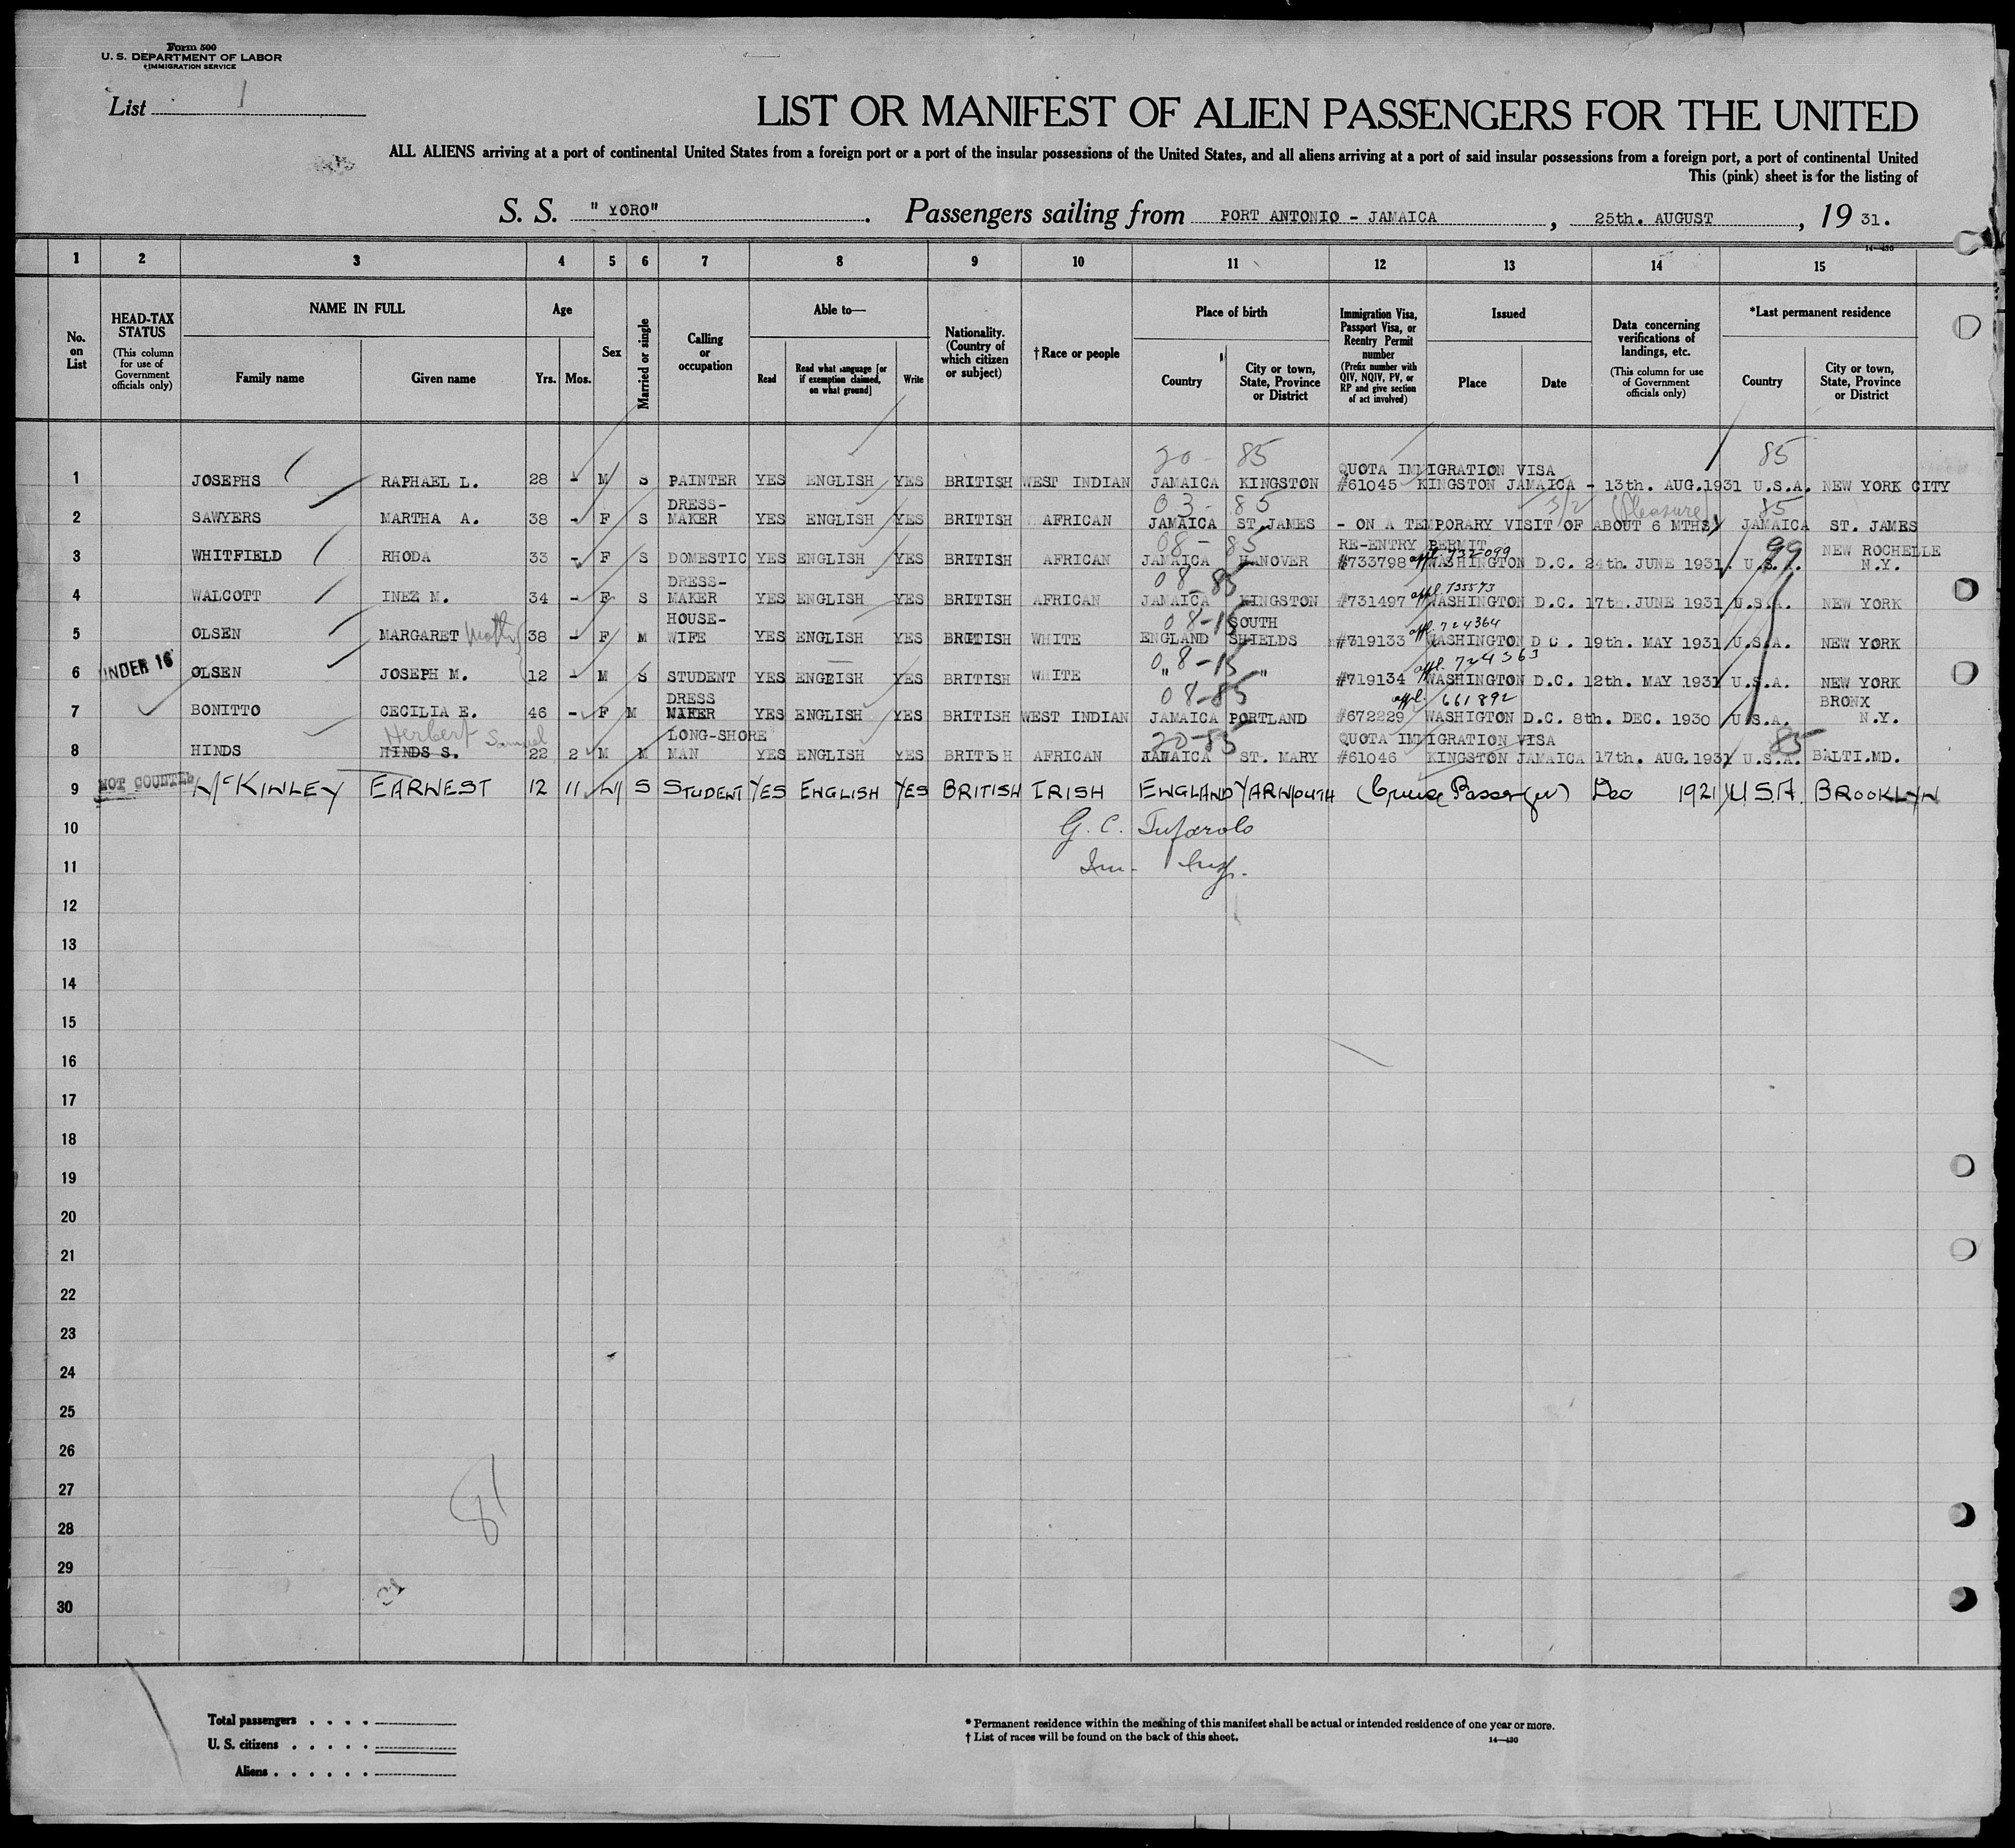 Form 500
U. S. DEPARTMENT OF LABOR
IMMIGRATION SERVICE
List 1
LIST OR MANIFEST OF ALIEN PASSENGERS FOR THE UNITED
ALL ALIENS arriving at a port of continental United States from a foreign port or a port of the insular possessions of the United States, and all aliens arriving at a port of said insular possessions from a foreign port, a port of continental United
This (pink) sheet is for the listing of
S. S. "YORO". Passengers sailing from PORT ANTONIO - JAMAICA, 25th. AUGUST, 19 31.
14—430
1 2 3 4 5 6 7 8 9 10 11 12 13 14 15
No. on List
HEAD-TAX STATUS (This column for use of Government officials only)
NAME IN FULL Family name Given name
Age Yrs. Mos.
Sex
Married or single
Calling or occupation
Able to— Read Read what language [or if exemption claimed, on what ground] Write
Nationality. (Country of which citizen or subject)
†Race or people
Place of birth Country City or town, State, Province or District
Immigration Visa, Passport Visa, or Reentry Permit number (Prefix number with QIV, NQIV, PV, or RP and give section of act involved)
Issued Place Date
Data concerning verifications of landings, etc. (This column for use of Government officials only)
*Last permanent residence Country City or town, State, Province or District
20 - 85 85
QUOTA IMMIGRATION VISA
1 JOSEPHS RAPHAEL L. 28 - M S PAINTER YES ENGLISH YES BRITISH WEST INDIAN JAMAICA KINGSTON #61045 KINGSTON JAMAICA - 13th. AUG.1931 U.S.A. NEW YORK CITY
03 - 85 3/2 Pleasure 85
2 SAWYERS MARTHA A. 38 - F S DRESS-MAKER YES ENGLISH YES BRITISH AFRICAN JAMAICA ST.JAMES - ON A TEMPORARY VISIT OF ABOUT 6 MTHS) JAMAICA ST. JAMES
08 - 85 RE-ENTRY PERMIT appl. 732099 99
3 WHITFIELD RHODA 33 - F S DOMESTIC YES ENGLISH YES BRITISH AFRICAN JAMAICA HANOVER #733798 WASHINGTON D.C. 24th. JUNE 1931. U.S.A. NEW ROCHELLE N.Y.
08 - 85 appl. 735573
4 WALCOTT INEZ M. 34 - F S DRESS-MAKER YES ENGLISH YES BRITISH AFRICAN JAMAICA KINGSTON #731497 WASHINGTON D.C. 17th. JUNE 1931 U.S.A. NEW YORK
08-15 appl. 724364
5 OLSEN MARGARET Mother 38 - F M HOUSE-WIFE YES ENGLISH YES BRITISH WHITE ENGLAND SOUTH SHIELDS #719133 WASHINGTON D C. 19th. MAY 1931 U.S.A. NEW YORK
08-15 appl. 724363
UNDER 16
6 OLSEN JOSEPH M. 12 - M S STUDENT YES ENGLISH YES BRITISH WHITE " " #719134 WASHINGTON D.C. 12th. MAY 1931 U.S.A. NEW YORK
08-85 appl. 661892
7 BONITTO CECILIA E. 46 - F M DRESS MAKER YES ENGLISH YES BRITISH WEST INDIAN JAMAICA PORTLAND #672229 WASHIGTON D.C. 8th. DEC. 1930 U.S.A. BRONX N.Y.
Herbert Samuel 20-85 QUOTA IMMIGRATION VISA 85
8 HINDS HINDS S. 22 2 M M LONG-SHORE MAN YES ENGLISH YES BRITISH AFRICAN JAMAICA ST. MARY #61046 KINGSTON JAMAICA 17th. AUG.1931 U.S.A. BALTI.MD.
NOT COUNTED
9 McKINLEY EARNEST 12 11 M S STUDENT YES ENGLISH YES BRITISH IRISH ENGLAND YARMOUTH (Cruise Passenger) Dec 1921 U.S.A. BROOKLYN
10 G. C. Tufarolo
11 Im. Insp.
12
13
14
15
16
17
18
19
20
21
22
23
24
25
26
27
28
29
30
81
Total passengers
U. S. citizens
Aliens
* Permanent residence within the meaning of this manifest shall be actual or intended residence of one year or more.
† List of races will be found on the back of this sheet.
14—430